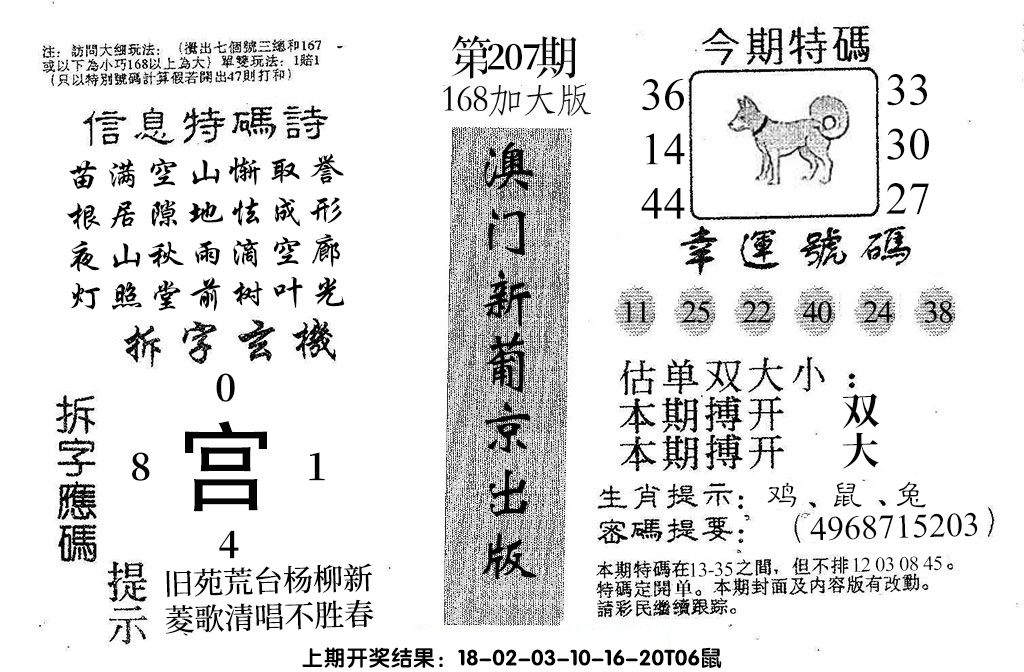 注：訪問大细玩法：（攪出七個號三總和167
或以下為小巧168以上為大）單雙玩法：1賠1
（只以特別號碼計算假若開出47則打和）
信息特碼詩
苗满空山慚取誉
根居隙地怯成形
夜山秋雨滴空廊
灯照堂前树叶光
拆字玄機
拆字應碼
0
8 宫 1
4
提示
旧苑荒台杨柳新
菱歌清唱不胜春
第207期
168加大版
澳门新葡京出版
今期特碼
36 33
14 30
44 27
幸運號碼
11 25 22 40 24 38
估单双大小：
本期搏开 双
本期搏开 大
生肖提示：鸡、鼠、兔
密碼提要：（4968715203）
本期特碼在13-35之間，但不排12 03 08 45。
特碼定開单。本期封面及内容版有改動。
請彩民繼續跟踪。
上期开奖结果：18-02-03-10-16-20T06鼠